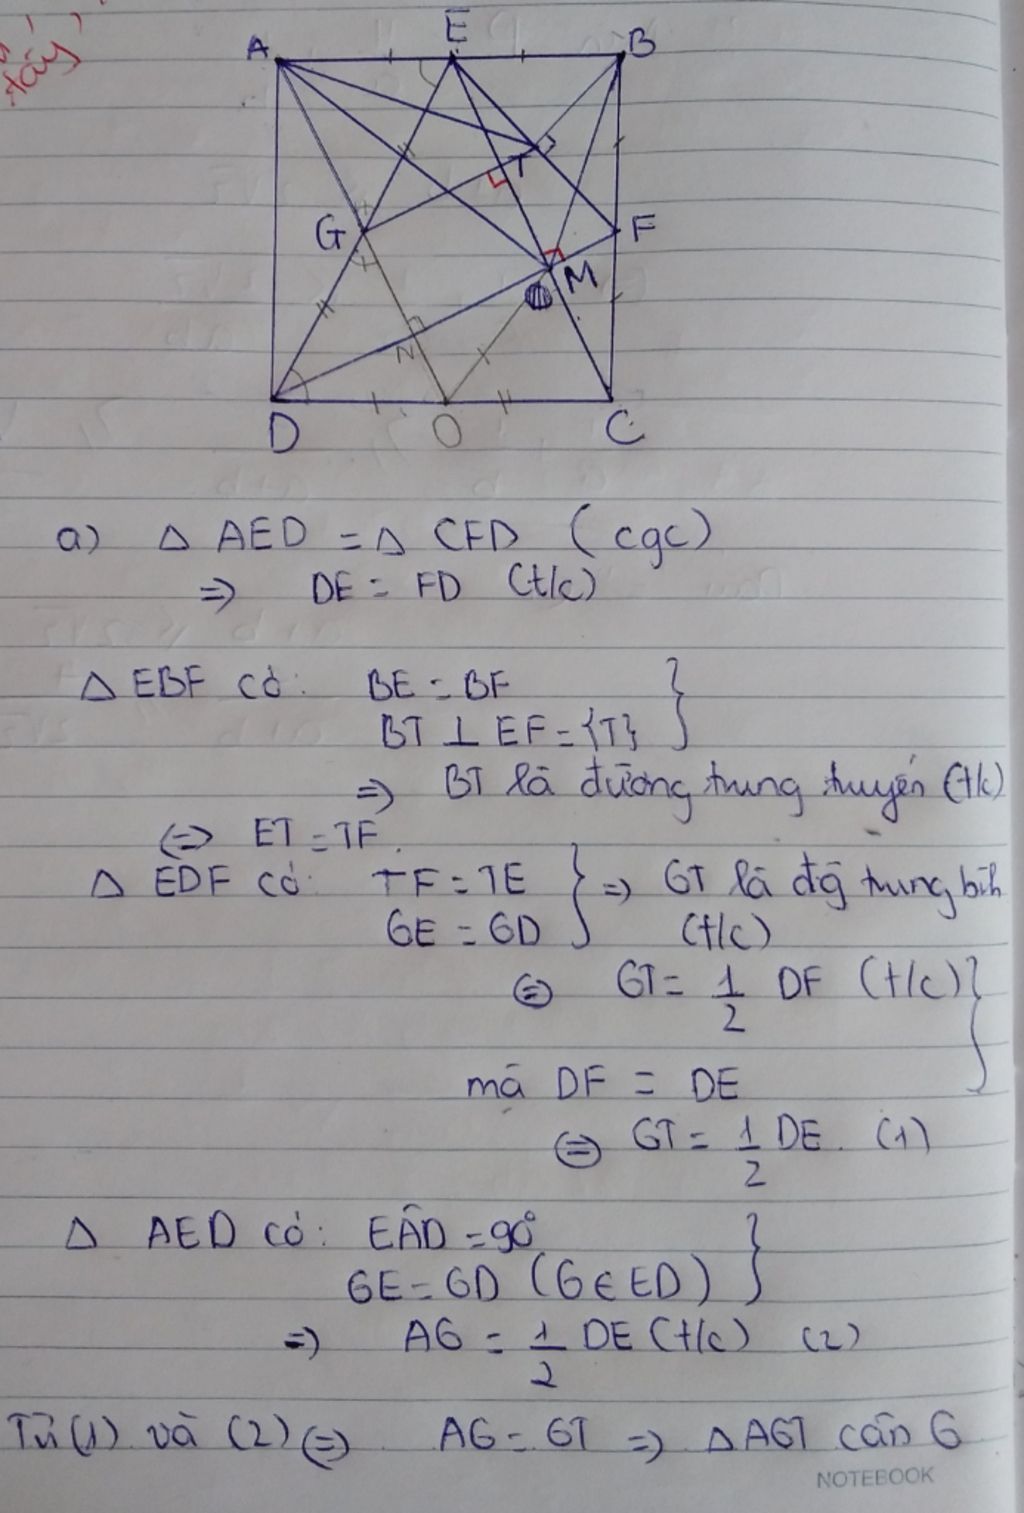 đây
A
E
B
T
G
F
M
N
D
O
C
a) Δ AED = Δ CFD (cgc)
=> DE = FD (t/c)
Δ EBF có: BE = BF
BT ⊥ EF = {T}
=> BT là đường trung tuyến (t/c)
<=> ET = TF.
Δ EDF có: TF = TE => GT là đg trung bih
GE = GD (t/c)
<=> GT = 1/2 DF (t/c)
mà DF = DE
<=> GT = 1/2 DE. (1)
Δ AED có: EÂD = 90°
GE = GD (G ∈ ED)
=> AG = 1/2 DE (t/c) (2)
Từ (1) và (2) <=> AG = GT => Δ AGT cân G
NOTEBOOK